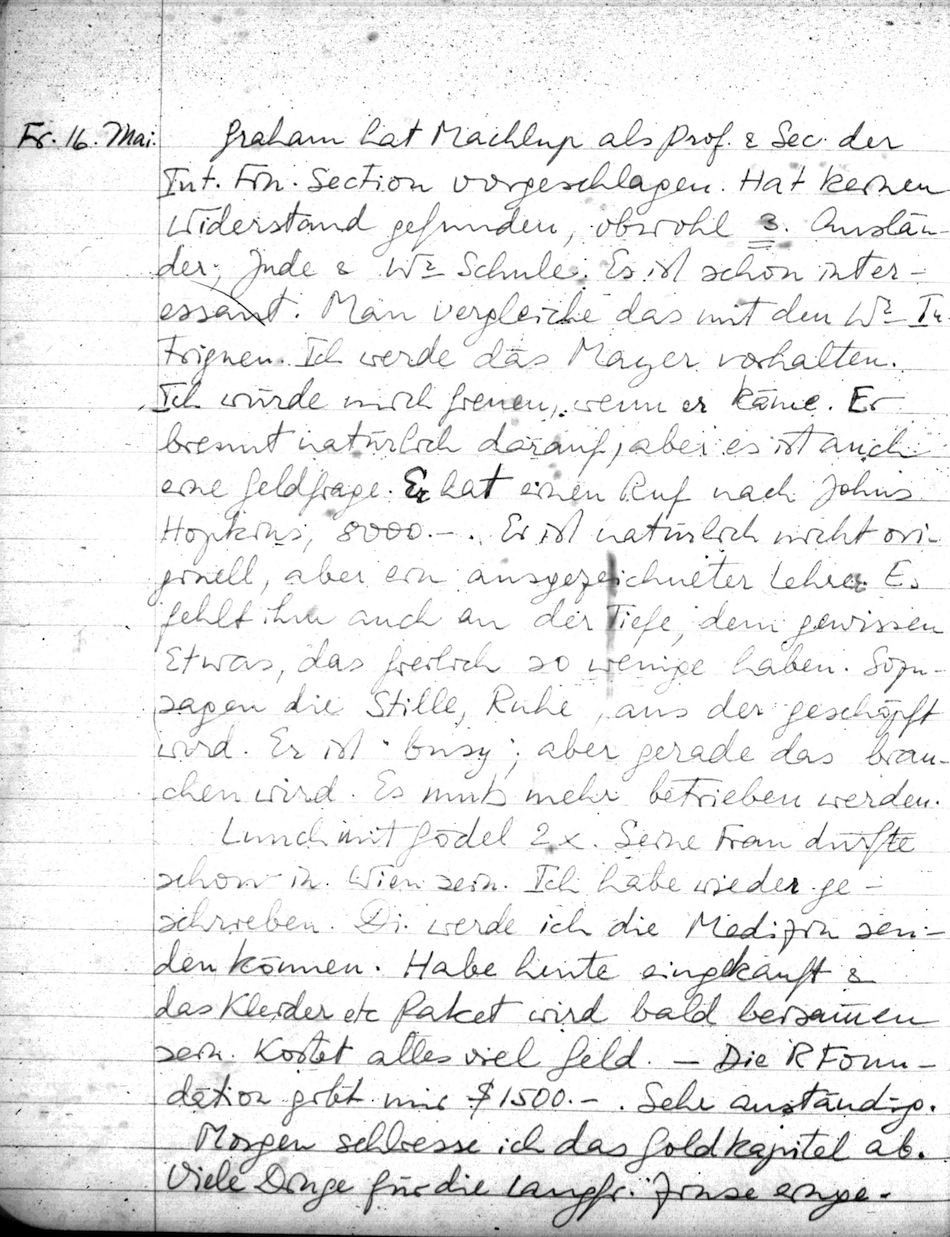 Fr. 16. Mai. Graham hat Machlup als Prof. & Sec. der
Int. Fin. Section vorgeschlagen. Hat keinen
Widerstand gefunden, obwohl 3. Auslän-
der, Jude & Wr Schule. Es ist schon inter-
essant. Man vergleiche das mit den Wr In-
trignen. Ich werde das Mayer vorhalten.
Ich würde mich freuen, wenn er käme. Er
brennt natürlich darauf, aber es ist auch
eine Geldfrage. Er hat einen Ruf nach Johns
Hopkins, 8000.-. Er ist natürlich nicht ori-
ginell, aber ein ausgezeichneter Lehrer. Es
fehlt ihm auch an der Tiefe, dem gewissen
Etwas, das freilich so wenige haben. Sozu-
sagen die Stille, Ruhe, aus der geschöpft
wird. Er ist "busy", aber gerade das brau-
chen wird. Es muß mehr betrieben werden.
Lunch mit Gödel 2x. Seine Frau dürfte
schon in Wien sein. Ich habe wieder ge-
schrieben. Di. werde ich die Medizin sen-
den können. Habe heute eingekauft &
das Kleider etc Paket wird bald beisam̅en
sein. Kostet alles viel Geld. — Die R Foun-
dation gibt mir $1500.-. Sehr anständig.
Morgen schliesse ich das Goldkapitel ab.
Viele Dinge für die langfr. Zinse einge-